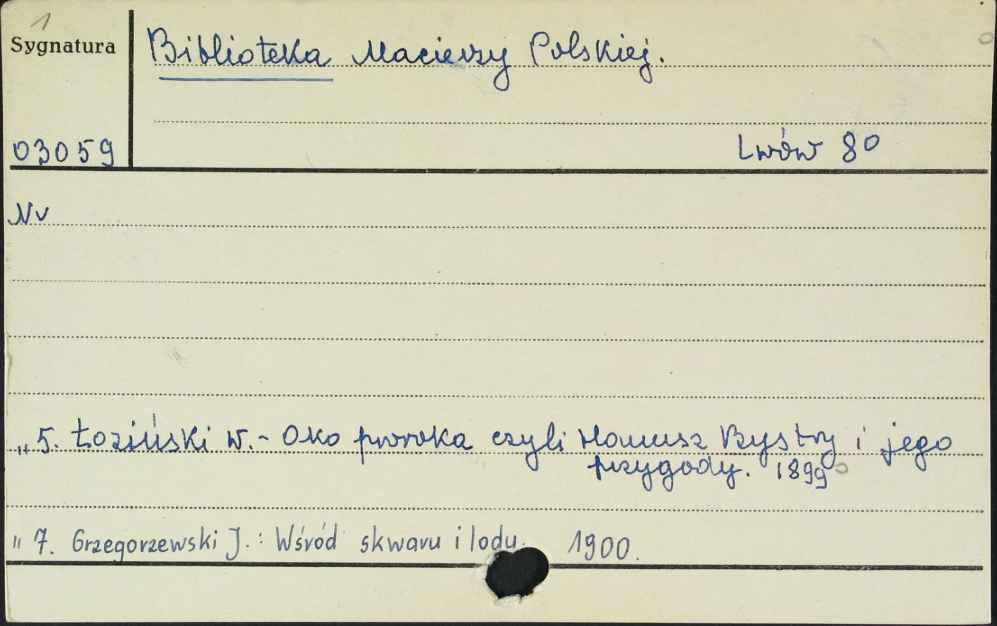 1
Sygnatura
Biblioteka Macierzy Polskiej.
03059
Lwów 8o
Nr
„ 5. Łoziński W. - Oko proroka czyli Hanusz Bystry i jego
przygody. 1899
" 7. Grzegorzewski J. : Wśród skwaru i lodu. 1900.